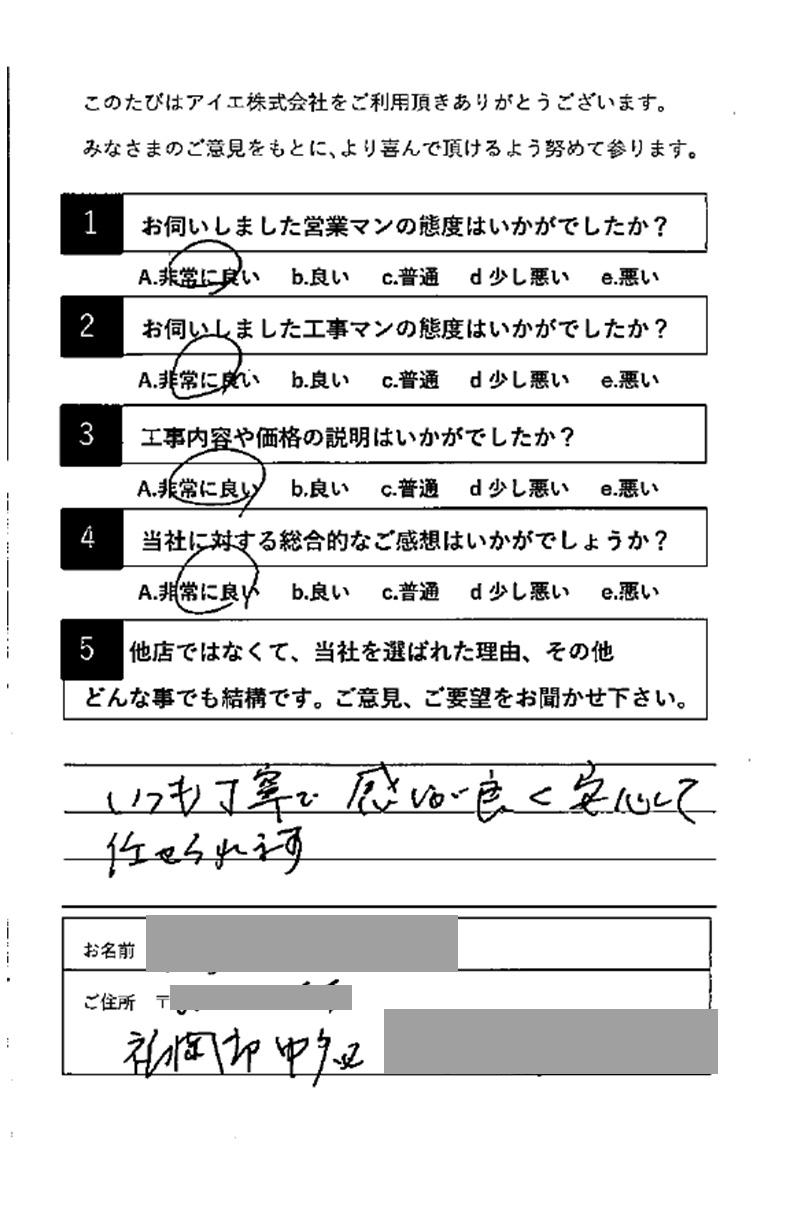 このたびはアイエ株式会社をご利用頂きありがとうございます。
みなさまのご意見をもとに、より喜んで頂けるよう努めて参ります。
1 お伺いしました営業マンの態度はいかがでしたか？
A.非常に良い b.良い c.普通 d 少し悪い e.悪い
2 お伺いしました工事マンの態度はいかがでしたか？
A.非常に良い b.良い c.普通 d 少し悪い e.悪い
3 工事内容や価格の説明はいかがでしたか？
A.非常に良い b.良い c.普通 d 少し悪い e.悪い
4 当社に対する総合的なご感想はいかがでしょうか？
A.非常に良い b.良い c.普通 d 少し悪い e.悪い
5 他店ではなくて、当社を選ばれた理由、その他
どんな事でも結構です。ご意見、ご要望をお聞かせ下さい。
いつも丁寧で 感じが良く安心して
任せられます
お名前
ご住所 〒
福岡市中央区